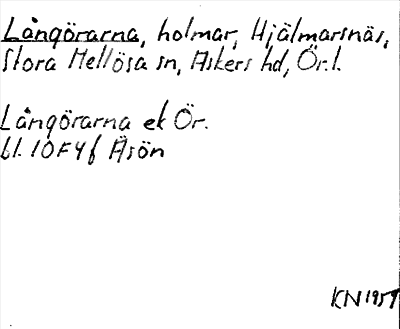 Långörarna, holmar, Hjälmarsnäs,
Stora Mellösa sn, Askers hd, Ör.l.
Långörarna ek Ör.
bl. 10F4f Äsön
KN 1959